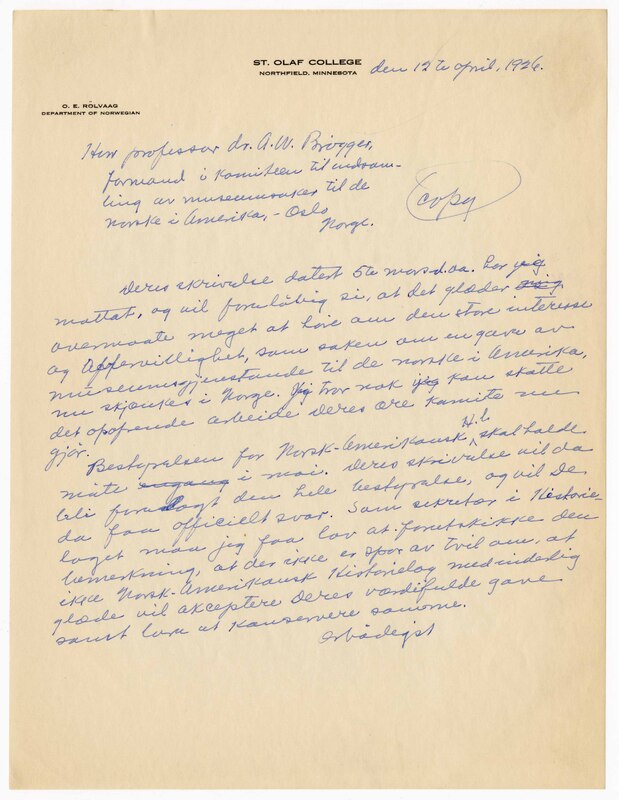 ST. OLAF COLLEGE
NORTHFIELD, MINNESOTA
den 12te april, 1926.
O. E. RÖLVAAG
DEPARTMENT OF NORWEGIAN
Herr professor dr. A. W. Brøgger,
Formand i komiteen til indsam-
ling av museumssaker til de
norske i Amerika, - Oslo
Norge.
Copy
Deres skrivelse datert 5te mars d.aa. har jeg
mottat, og vil foreløbig si, at det glæder mig
overmaate meget at høre om den store interesse
og Offervillighet, som saken om en gave av
museumsgjenstande til de norske i Amerika,
nu skjænkes i Norge. Jeg tror nok jeg kan skatte
det opofrende arbeide Deres ære komite nu
gjør.
Bestyrelsen for Norsk-Amerikansk H.l. skal holde
møte engang i mai. Deres skrivelse vil da
bli forelagt den hele bestyrelse, og vil De
da faa officielt svar. Som sekretær i Historie
laget maa jeg faa lov at forutskikke den
bemerkning, at der ikke er spor av tvil om, at
ikke Norsk-Amerikansk Historielag med inderlig
glæde vil akceptere Deres værdifulde gave
samt love at konservere samme.
ærbödigst